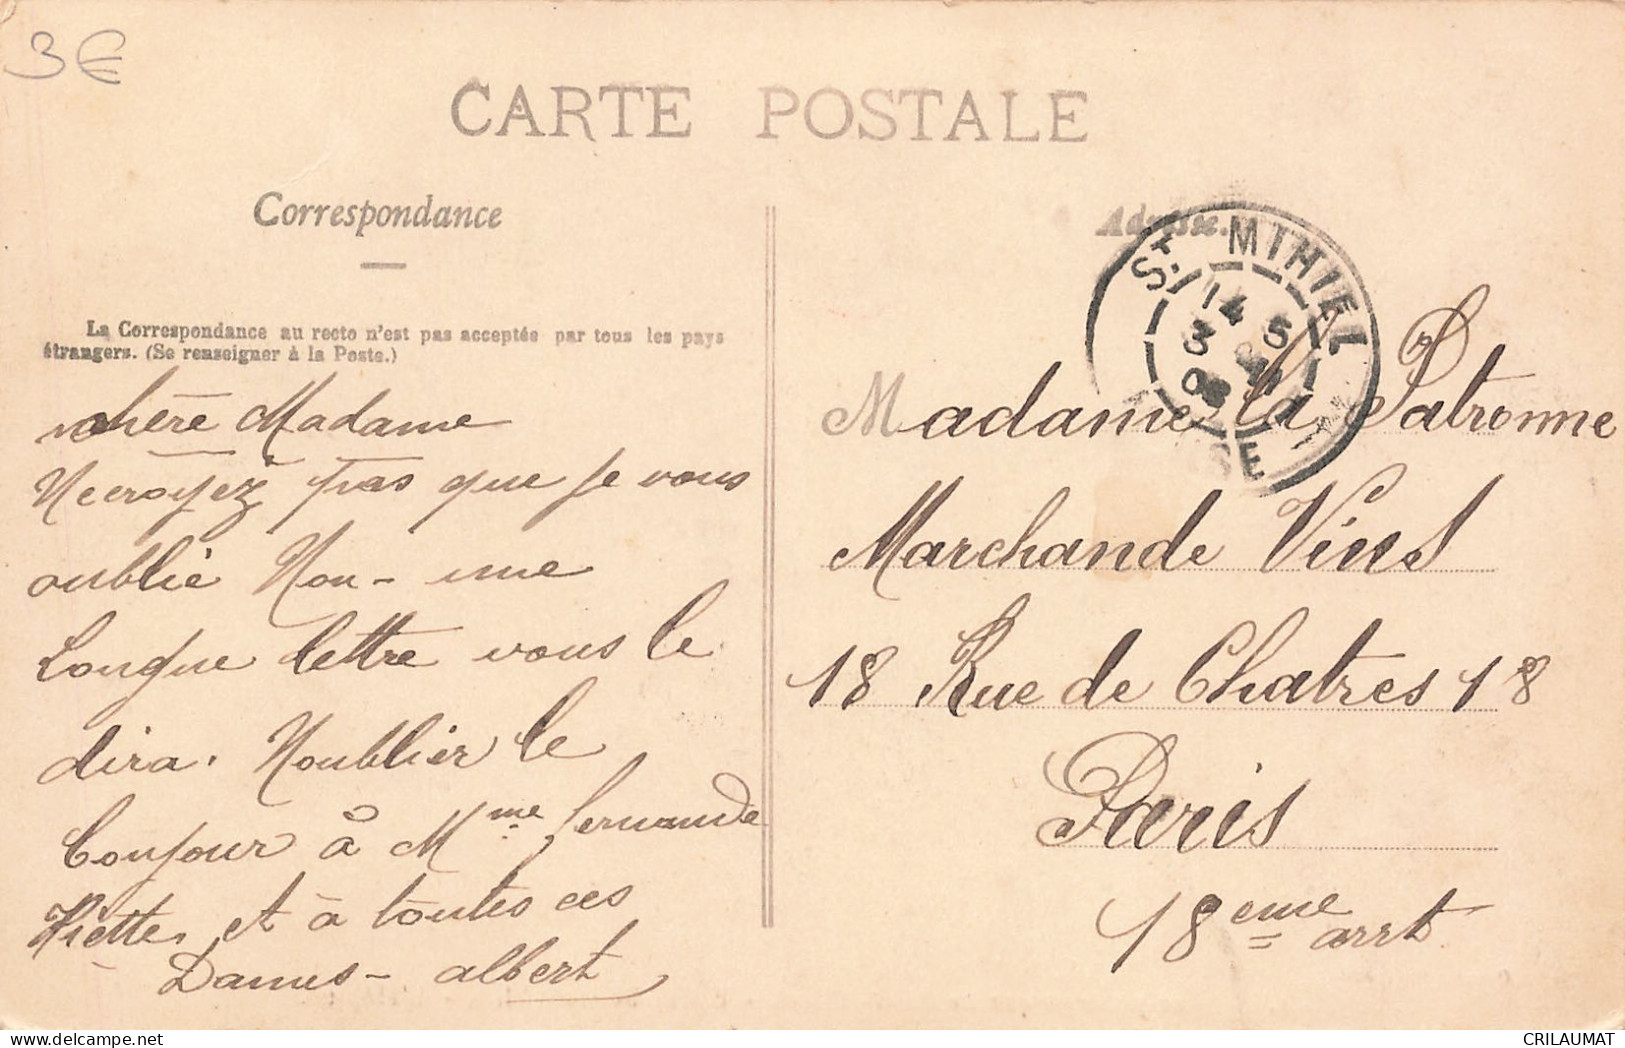 3€
CARTE POSTALE
Correspondance
Adresse.
La Correspondance au recto n'est pas acceptée par tous les pays
étrangers. (Se renseigner à la Poste.)
chère Madame
Necroyez pas que je vous
oublie Non - une
Longue lettre vous le
dira. Noublier le
bonjour à Mme fernande
et à toutes ces
Dames - albert
ST. MIHIEL
14
3 5
08
SE
Madame la Patronne
Marchande Vins
18 Rue de Chatres 18
Paris
18 eme arrt
CRILAUMAT